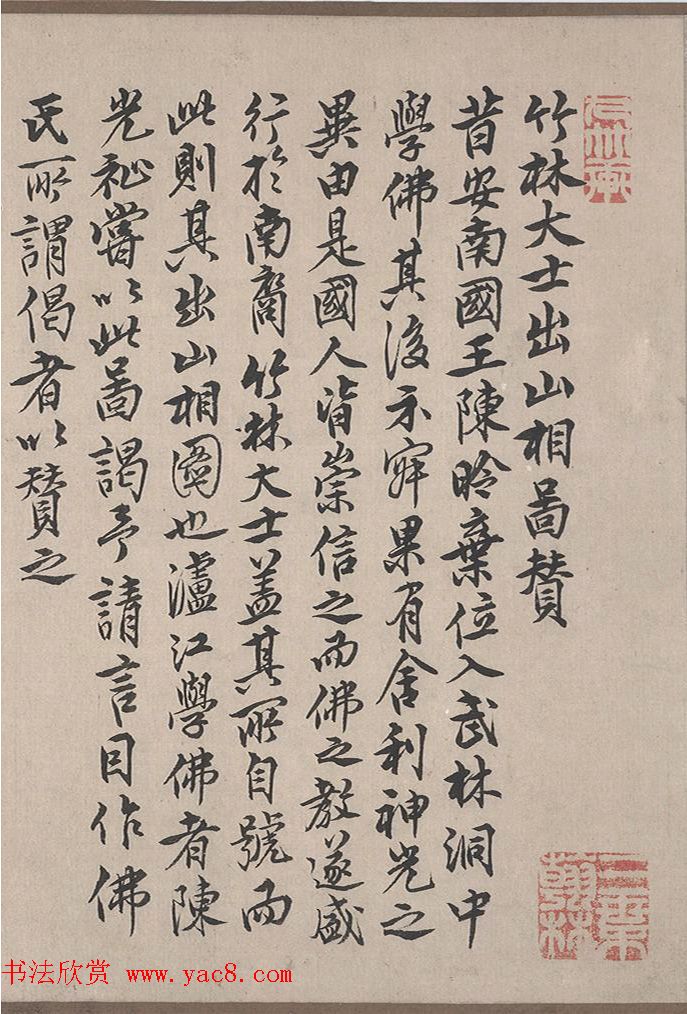 竹林大士出山相啚贊
昔安南國王陳昑棄位入武林洞中
學佛其後示寂果有舍利神光之
異由是國人皆崇信之而佛之教遂盛
行於南裔竹林大士盖其所自號而
此則其出山相圖也瀘江學佛者陳
光祉嘗以此啚謁予請言因作佛
氏所謂偈者以贊之
书法欣赏 www.yac8.com